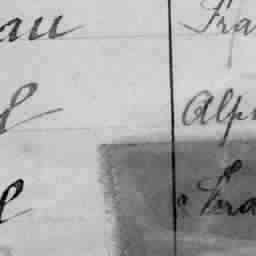 au Fra
l Alp
l Fra